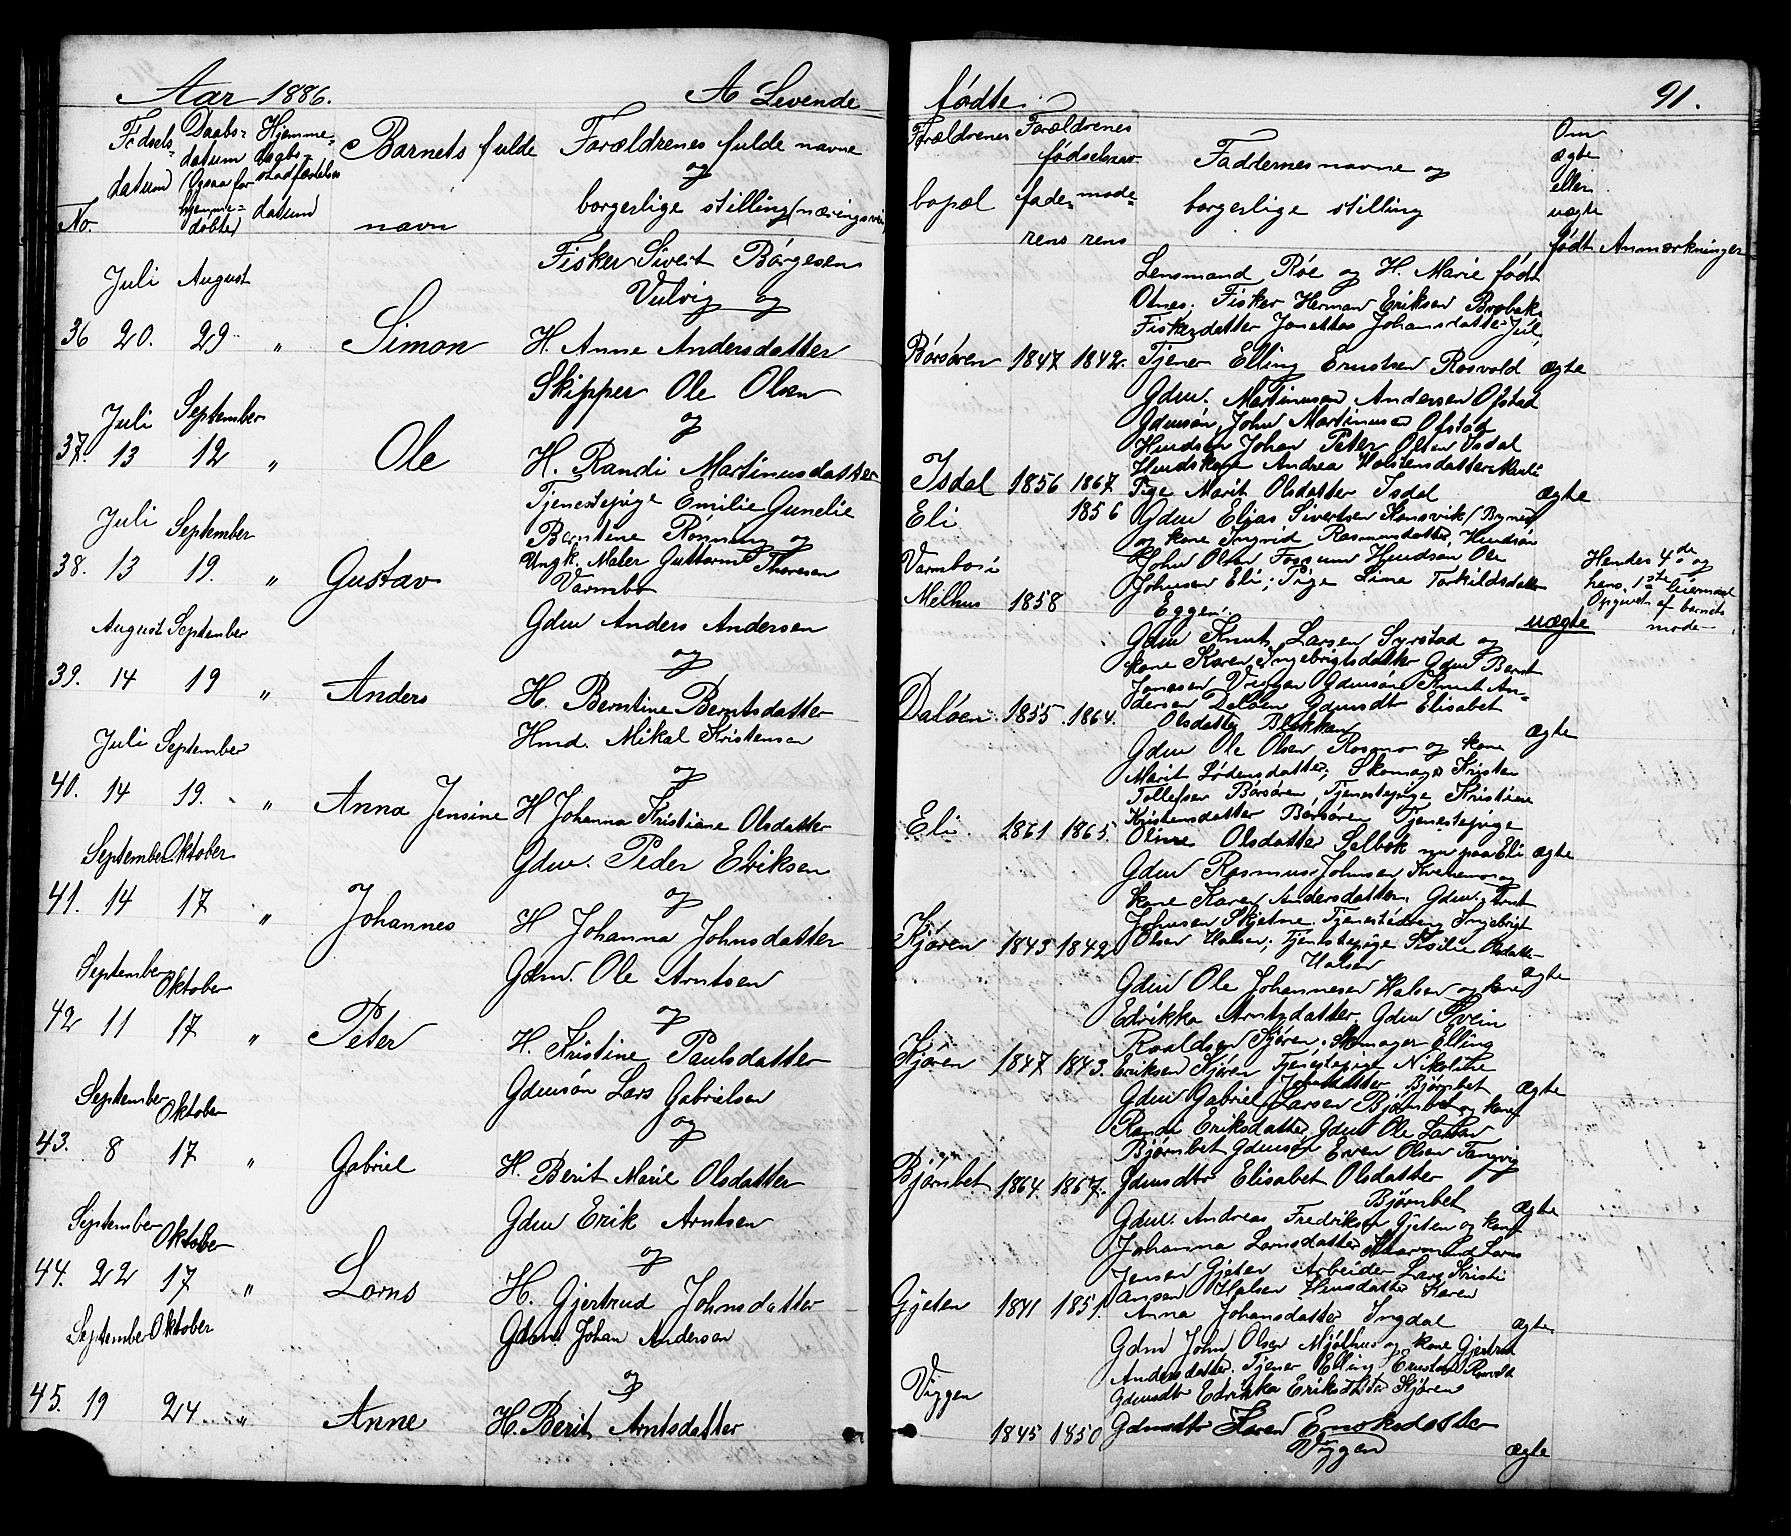 Aar 1886.
A Levende
fødte.
91.
No.
Fødsels-
datum
Daabs-
datum
(Ogsaa for
hjemme-
døbte)
Hjemme-
daabs-
stadfæstelses
datum
Barnets fulde
navn
Forældrenes fulde navne
og
borgerlige stilling (næringsvei)
Forældrenes
bopæl
Forældrenes
fødselsaar
fade- mode-
rens rens
Faddernes navne og
borgerlige stilling
Om
ægte
eller
uægte
født
Anmærkninger
Juli August
36 20. 29. "
Simon
Fisker Sivert Børgesen
Vulvig og
H. Anne Andersdatter
Børsøren 1847 1842.
Lensmand Røe og H. Marie født
Olnes. Fisker Herman Eriksen Brøbak
Fiskerdatter Jonetta Johansdatter Jul,
Tjener Elling Ernstsen Rosvold ægte
Juli September
37. 13 12 "
Ole
Skipper Ole Olsen
og
H. Randi Martinusdatter
Isdal 1856 1867
Gdm. Martinusen Andersen Ofstad
Gdmsøn John Martinusen Ofstad
Hmdsøn Johan Peter Olsen Isdal
Hmdskone Andrea Holstensdatter
Pige Marit Olsdatter Isdal ægte
Juli September
38. 13 19. "
Gustav
Tjenestepige Emilie Gunelie
Berntine Rønning og
Ungk. Maler Guttorm Thoresen
Varmbo
Eli 1856
Varmbo i
Melhus 1858
Gdm Elias Sivertsen Konsvik (Bynes)
og kone Ingrid Rasmusdatter, Hmdsøn
John Olsen Fossum Hmdsøn Ole
Johnsen Eli; Pige Lina Torkildsdatter
Eggen.
uægte
Hendes 4de og
hans 1ste leiermaal
Opgivet af barnets
mode-
August September
39. 14 19 "
Anders
Gdm Anders Andersen
og
H. Berntine Berntsdatter
Daløen 1855 1864.
Gdm Knut Larsen Syrstad og
kone Karen Ingebrigtsdatter Gdm Bernt
Jonasen Viggen Gdmsøn Knut An-
dersen Daløen Gdmsdtr Elisabet
Olsdatter Blekkan ægte
Juli September
40. 14 19. "
Anna Jensine
Hmd. Mikal Kristensen
og
H Johanna Kristiane Olsdatter
Eli. 1861 1865.
Gdm Ole Olsen Rosmo og kone
Marit Lødensdatter; Skomager Kristen
Tollefsen Børsøren, Tjenestepige Kristiane
Kristensdatter Børsøren Tjenestepige
Oline Olsdatter Selbek nu paa Eli ægte
September Oktober
41. 14 17 "
Johannes
Gdm. Peder Eriksen
og
H Johanna Johnsdatter
Kjøren 1843 1842
Gdm Rasmus Johnsen Kvernmo og
kone Karen Andersdatter. Gdm. Arnt
Johnsen Skjetne. Tjenestedreng Ingebrigt
Olsen Halsen; Tjenstepige Sesilie Olsdatter
Halsen ægte
September Oktober
42 11 17 "
Peter
Gdm. Ole Arntsen
og
H. Kristine Paulsdatter
Kjøren 1847 1843.
Gdm Ole Johannesen Halsen og kone
Edrikka Arntsdatter. Gdm Svein
Roaldsen Kjøren. Skomager Elling
Eriksen Kjøren Tjenestepige Nikoline
Johnsdatter Bjørnbet ægte
September Oktober
43. 8 17 "
Gabriel
Gdmsøn Lars Gabrielsen
og
H. Berit Marie Olsdatter
Bjørnbet 1864. 1867.
Gdm Gabriel Larsen Bjørnbet og kone
Randi Eriksdatter, Gdm Ole Larsen
Bjørnbet Gdmsøn Even Olsen Tangvig
Gdmsdtr Elisabet Olsdatter
Bjørnbet ægte
September Oktober
44. 22 17 "
Lorns
Gdm Erik Arntsen
og
H. Gjertrud Johnsdatter
Gjeten 1841 1851.
Gdm. Andreas Fredriksen Gjeten og kone
Johanna Lornsdatter Lorns
Jensen Gjeten Arbeider Lars Kristi
ansen Halsen Hmsdatter Karen
Anna Johansdatter Ingdal ægte
September Oktober
45. 19 24 "
Anne
Gdm. Johan Andersen
og
H. Berit Arntsdatter
Viggen
1845 1850
Gdm John Olsen Mjølhus og kone Gjertrud
Andersdatter, Tjener Elling Ernstsen Rosvold
Gdmsdtr Edrikka Eriksdatter Kjøren
Gdmsdtr Karen Enoksdatter
Viggen ægte